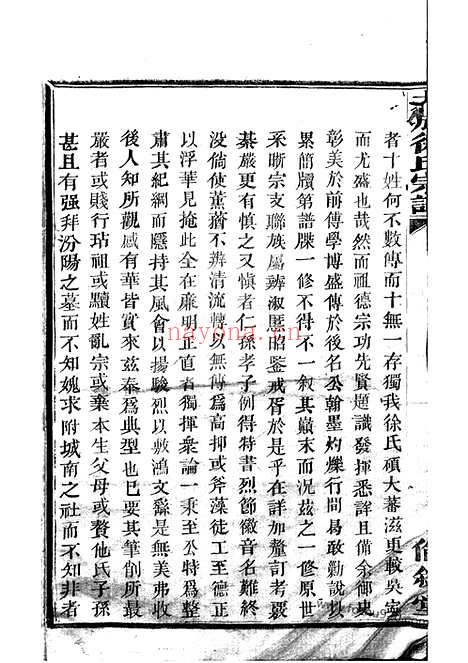 徐氏宗譜
者十姓何不數傳而十無一存獨我徐氏碩大蕃滋更較吳
而尤盛也哉然而祖德宗功先賢題識發揮悉詳且備余卽
彰美於前傳學博盛傳於後名公翰墨灼爍行間曷敢勦說以
累簡牘第譜牒一修不得不一叙其巔末而況茲之一修原世
系晰宗支聯族屬辨淑慝昭鑒戒胥於是乎在詳加釐訂
綦嚴更有慎之又慎者仁人孝子例得特書烈節徽音名難終
沒倘使薰蕕不辨清流輒以無傳爲高抑或斧藻徒工至德正
以浮華見掩此全在廉明正直者獨揮衆論一秉至公特爲整
肅其紀綱而隱持其風會以揚駿烈以敷鴻文靡是無美弗收
後人知所觀感有華皆實來茲奉爲典型也已要其筆削所最
嚴者或賤行玷祖或黷姓亂宗或棄本生父母或贅他氏子孫
甚且有强拜汾陽之墓而不知媿求附城南之社而不知非者
nayona.cn